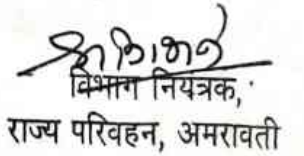 विभाग नियत्रक,
राज्य परिवहन, अमरावती